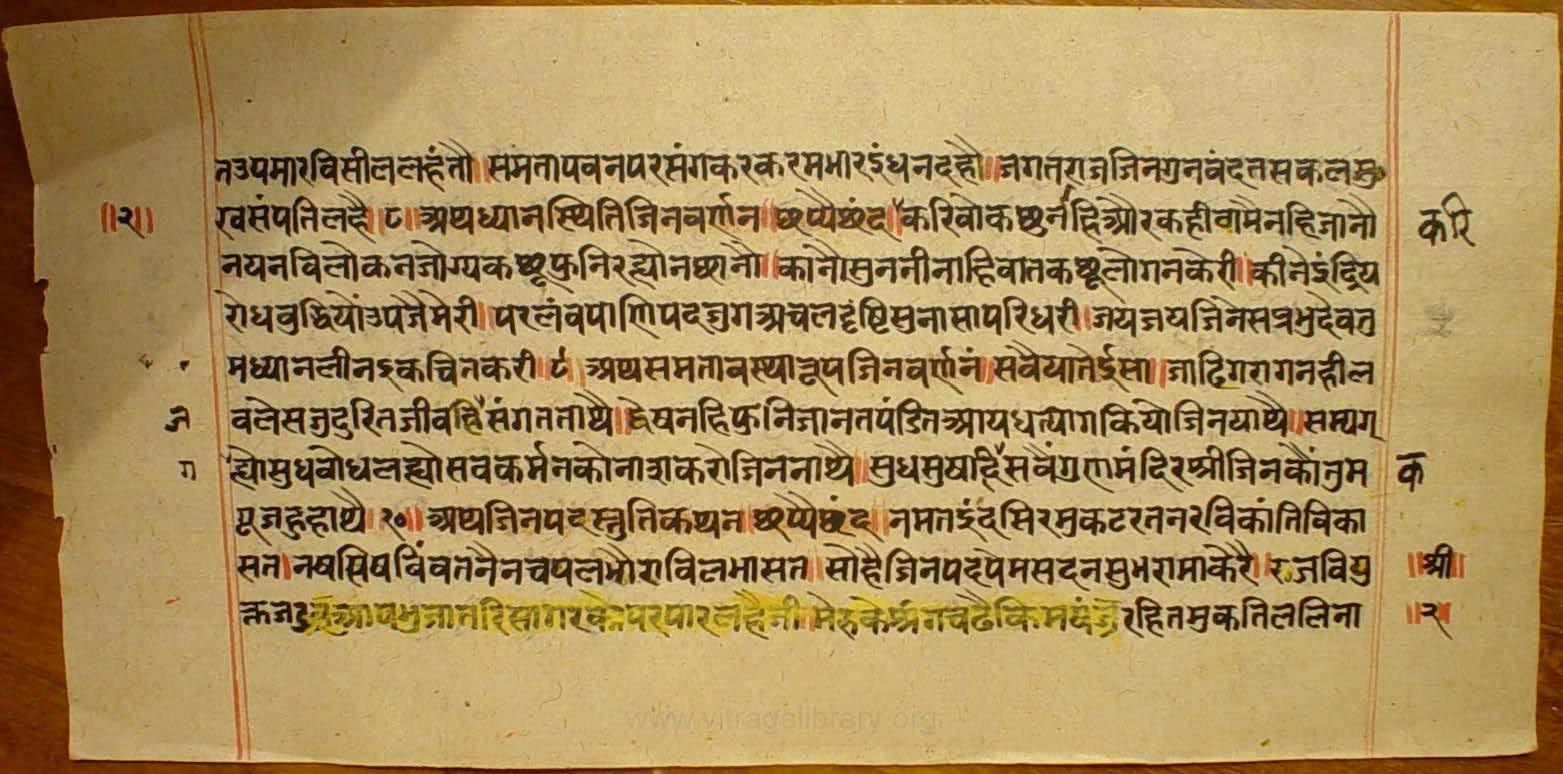 तउपमारविसीललहंतौ ॥ समतापवनपरसंगकरकरमभारइंधनदहौ ॥ जगतराजजिनगुनवंदतसकलसु
॥२॥ रवसंपतिलहै ॥ ८ ॥ अथध्यानस्थितिजिनवर्णन ॥ छप्पैछंद ॥ करिवोकछुनहिऔरकहीवामैनहिजानौ करि
नयनविलोकनजोग्यकछूफुनिरह्योनछानौ ॥ कानौसुननीनाहिवातकछूलोगनकेरी ॥ कीनेइंद्रिय
रोधवुद्धियोंउपजैमेरी ॥ परलंवपाणिपदजुगअचलदृष्टिसुनासापरिधरी ॥ जयजयजिनेस
मध्यानलीनइकचितकरी ॥ ९ ॥ अथसमतावस्थारूपजिनवर्णनं ॥ सवैयातेईसा ॥ जाढिगरागनहील
वलेसजुदुरितजीवहिसंगततापै ॥ द्वेषनहिफुनिजानतपंडितआयधत्यागकियोजिनयापै ॥ सम्यग्
ह्योसुधवोधलह्योसवकर्मनकोनाशकरोजिननापै सुधसुषाहिसवैंगुणमंदिरश्रीजिनकौंतुम क
जहुहापै ॥ १० ॥ अथजिनपदस्तुतिकथन ॥ छप्पैछंद ॥ नमतइंदसिरमुकटरतनरविकांतिविका
सत । नषससिषविंवतनैनचपलभौराविलभासत ॥ सोहैजिनपदपदमसदनसुभरामाकेरै ॥ ॥श्री॥
रहितमुकतिललिना ॥२
www.vitragelibrary.org